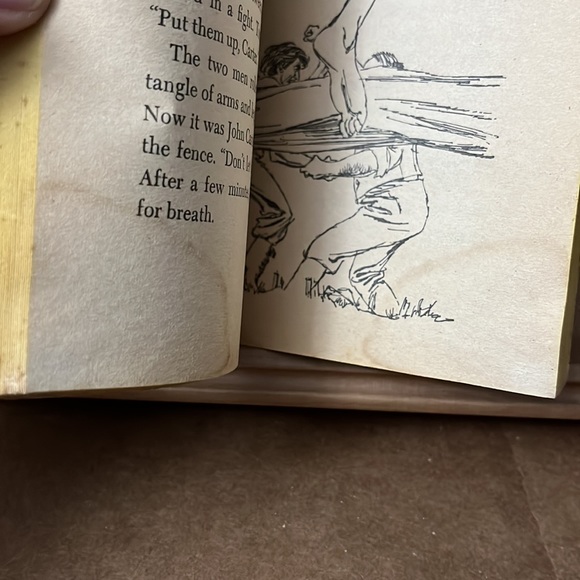 in a fight.
“Put them up,
The two men
tangle of arms and
Now it was John
the fence. “Don't
After a few
for breath.